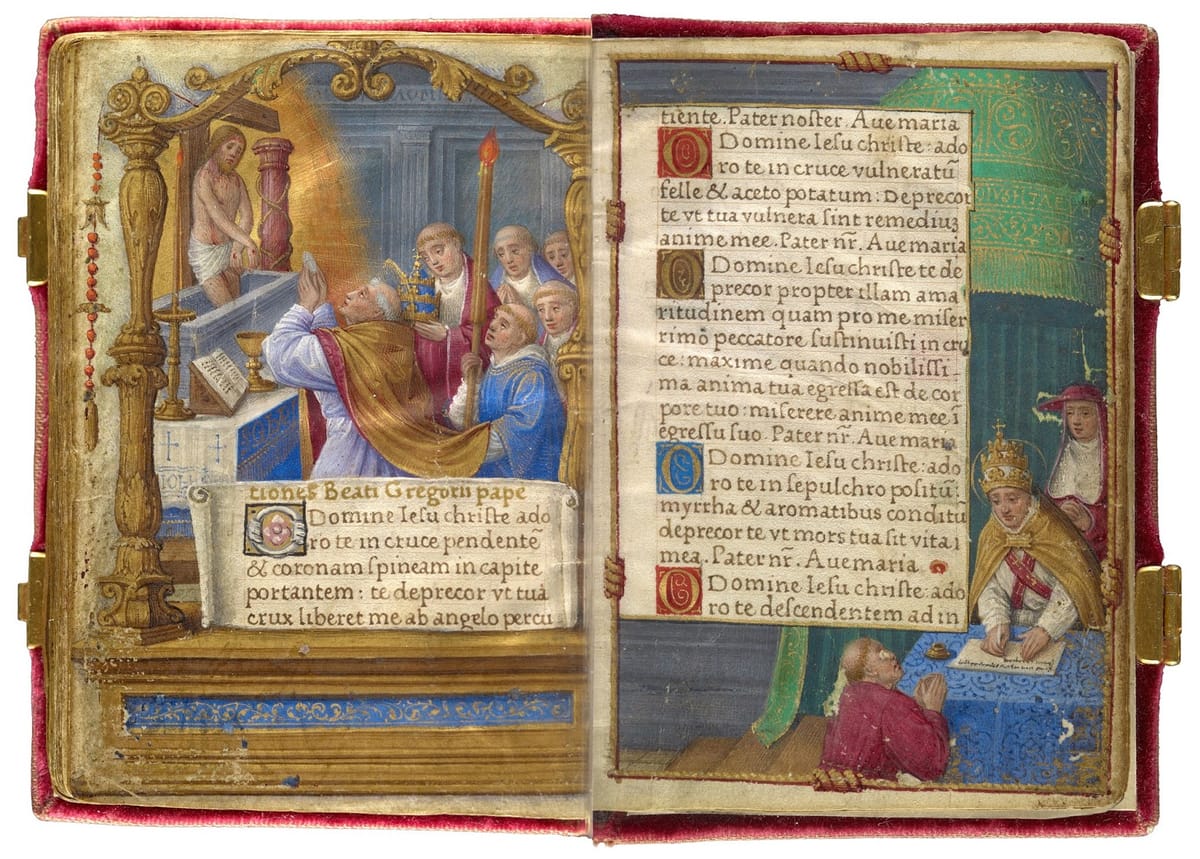 tiones Beati Gregorii pape
O Domine Iesu christe ado
ro te in cruce pendentē
& coronam spineam in capite
portantem : te deprecor vt tuà
crux liberet me ab angelo percu
tiente. Pater noster. Aue maria
O Domine Iesu christe : ado
ro te in cruce vulneratū
felle & aceto potatum : Deprecor
te vt tua vulnera sint remediuȝ
anime mee. Pater nr̄. Aue maria
O Domine Iesu christe te de
precor propter illam ama
ritudinem quam pro me miser
rimo peccatore sustinuisti in cru
ce : maxime quando nobilissi
ma anima tua egressa est de cor
pore tuo : miserere anime mee ī
egressu suo. Pater nr̄. Aue maria
O Domine Iesu christe : ado
ro te in sepulchro positū :
myrrha & aromatibus conditū
deprecor te vt mors tua sit vita
mea. Pater nr̄. Aue maria
O Domine Iesu christe : ado
ro te descendentem ad in